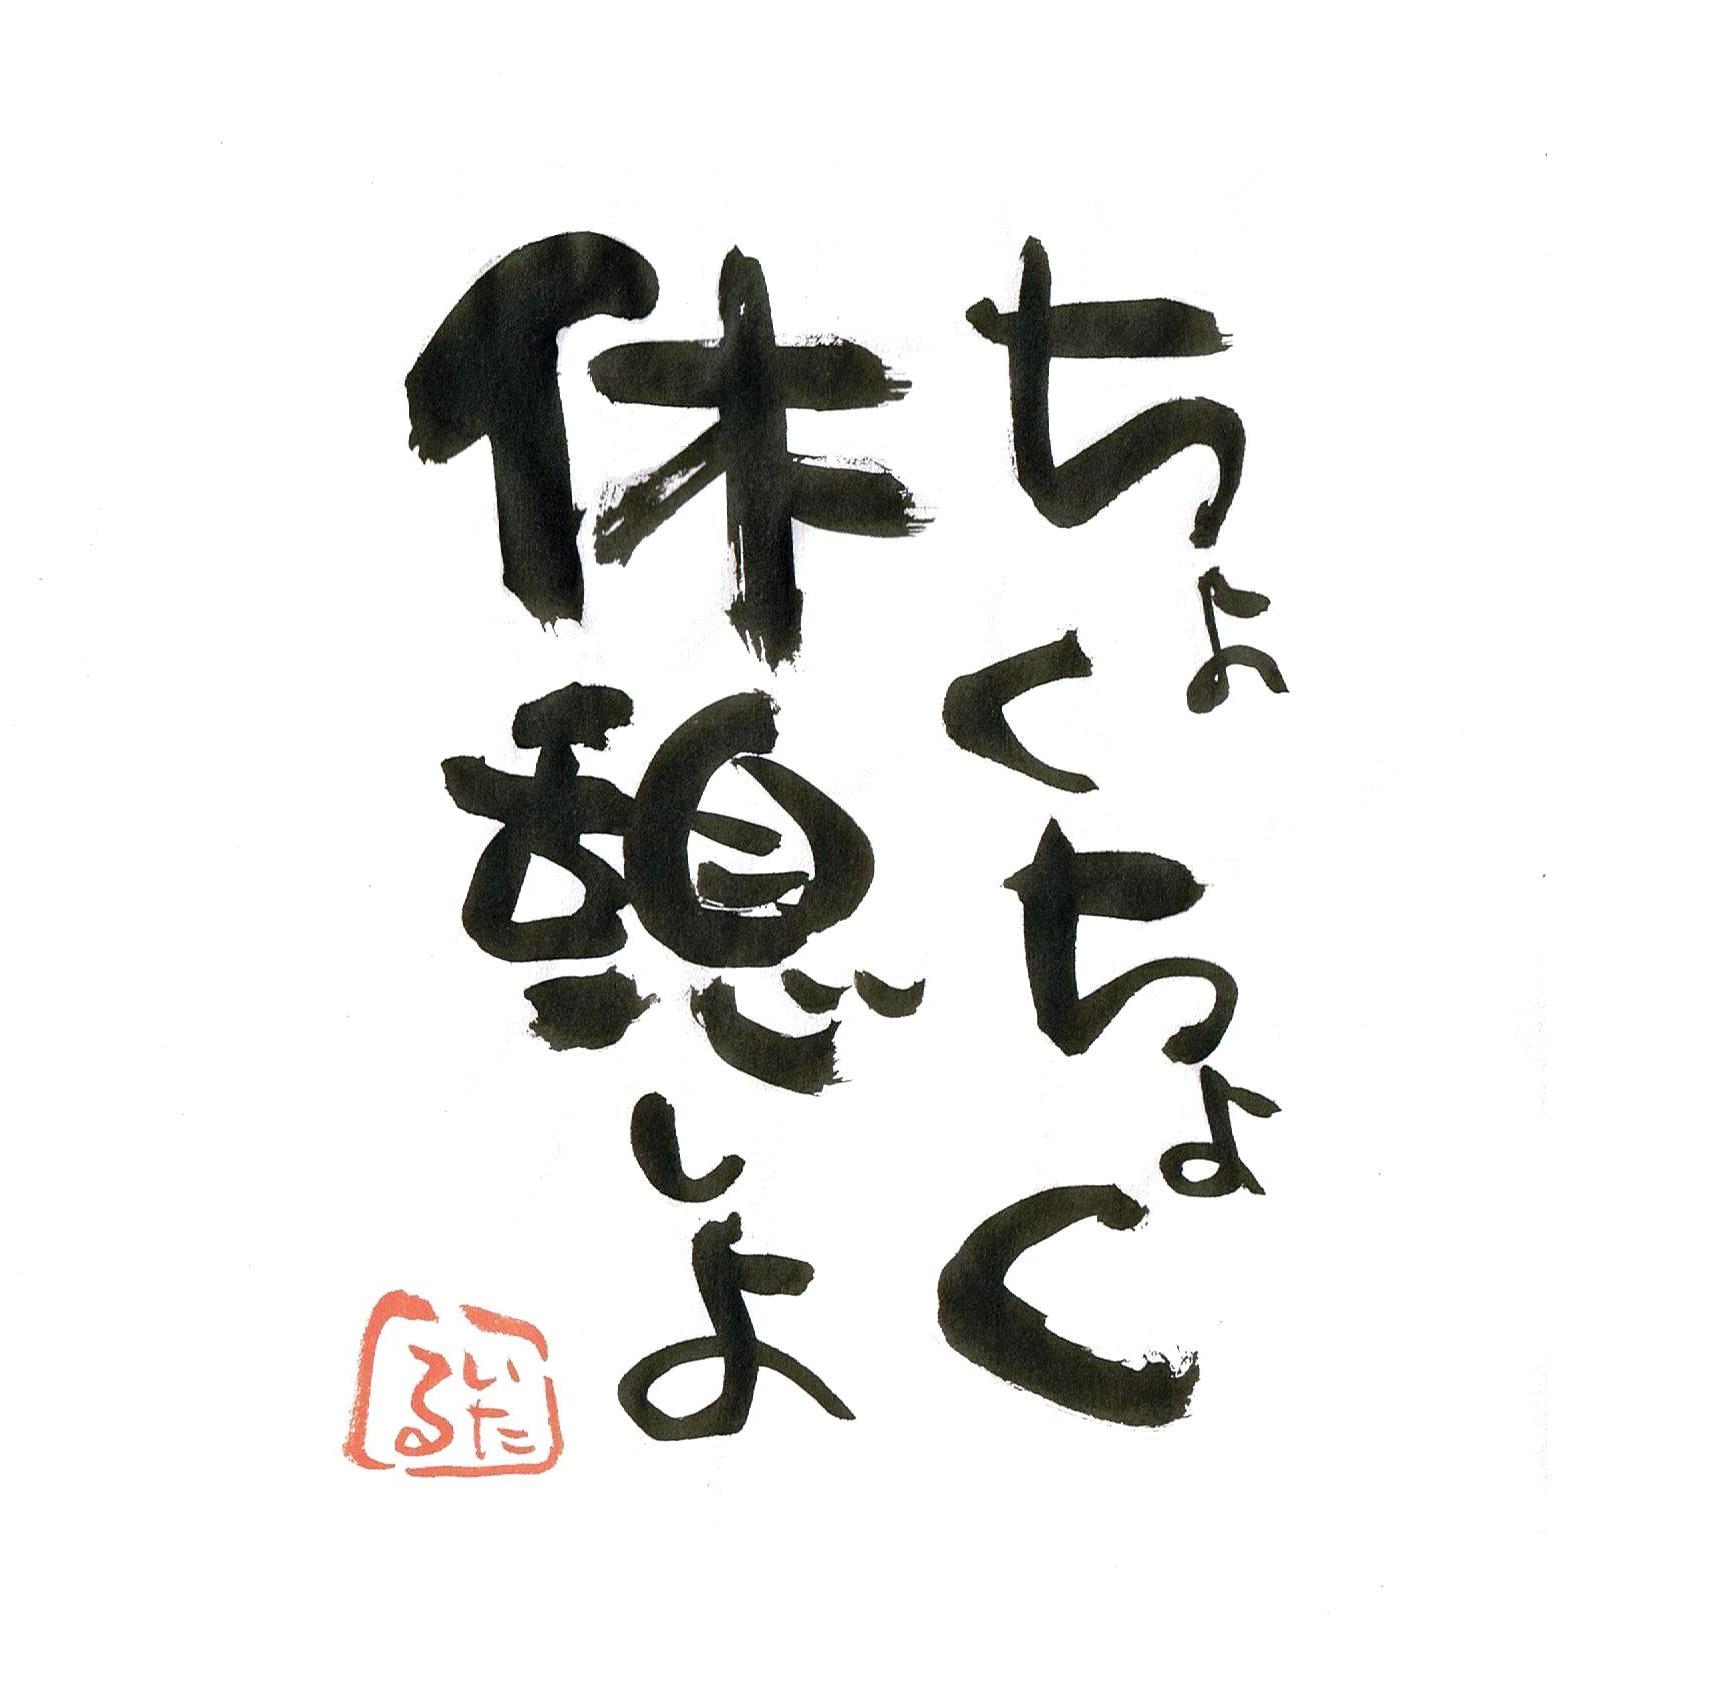 ちょくちょく
休憩しよ
いたる